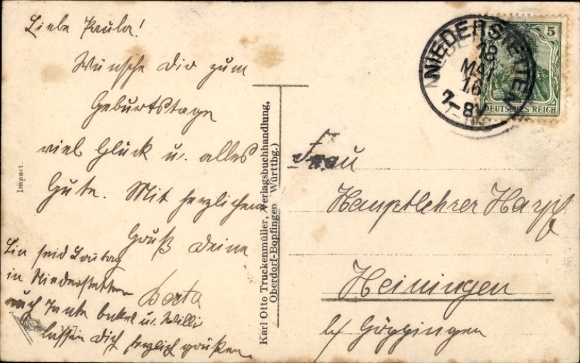 Liebe Paula!
Wünsche Dir zum
Geburtstage
viel Glück u. alles
Gute. Mit herzlichem
Gruß Deine
Berta
Bin seid Sonntag
in Niederstetten
auch Tante u. Willi
lassen Dich herzlich grüßen.
Import.
Karl Otto Truckenmüller, Verlagsbuchhandlung,
Oberdorf-Bopfingen (Württbg.)
NIEDERSTETTEN
18
MAI
16
7-8V
5
DEUTSCHES REICH
Frau
Hauptlehrer Harpf
Heiningen
b/ Göppingen